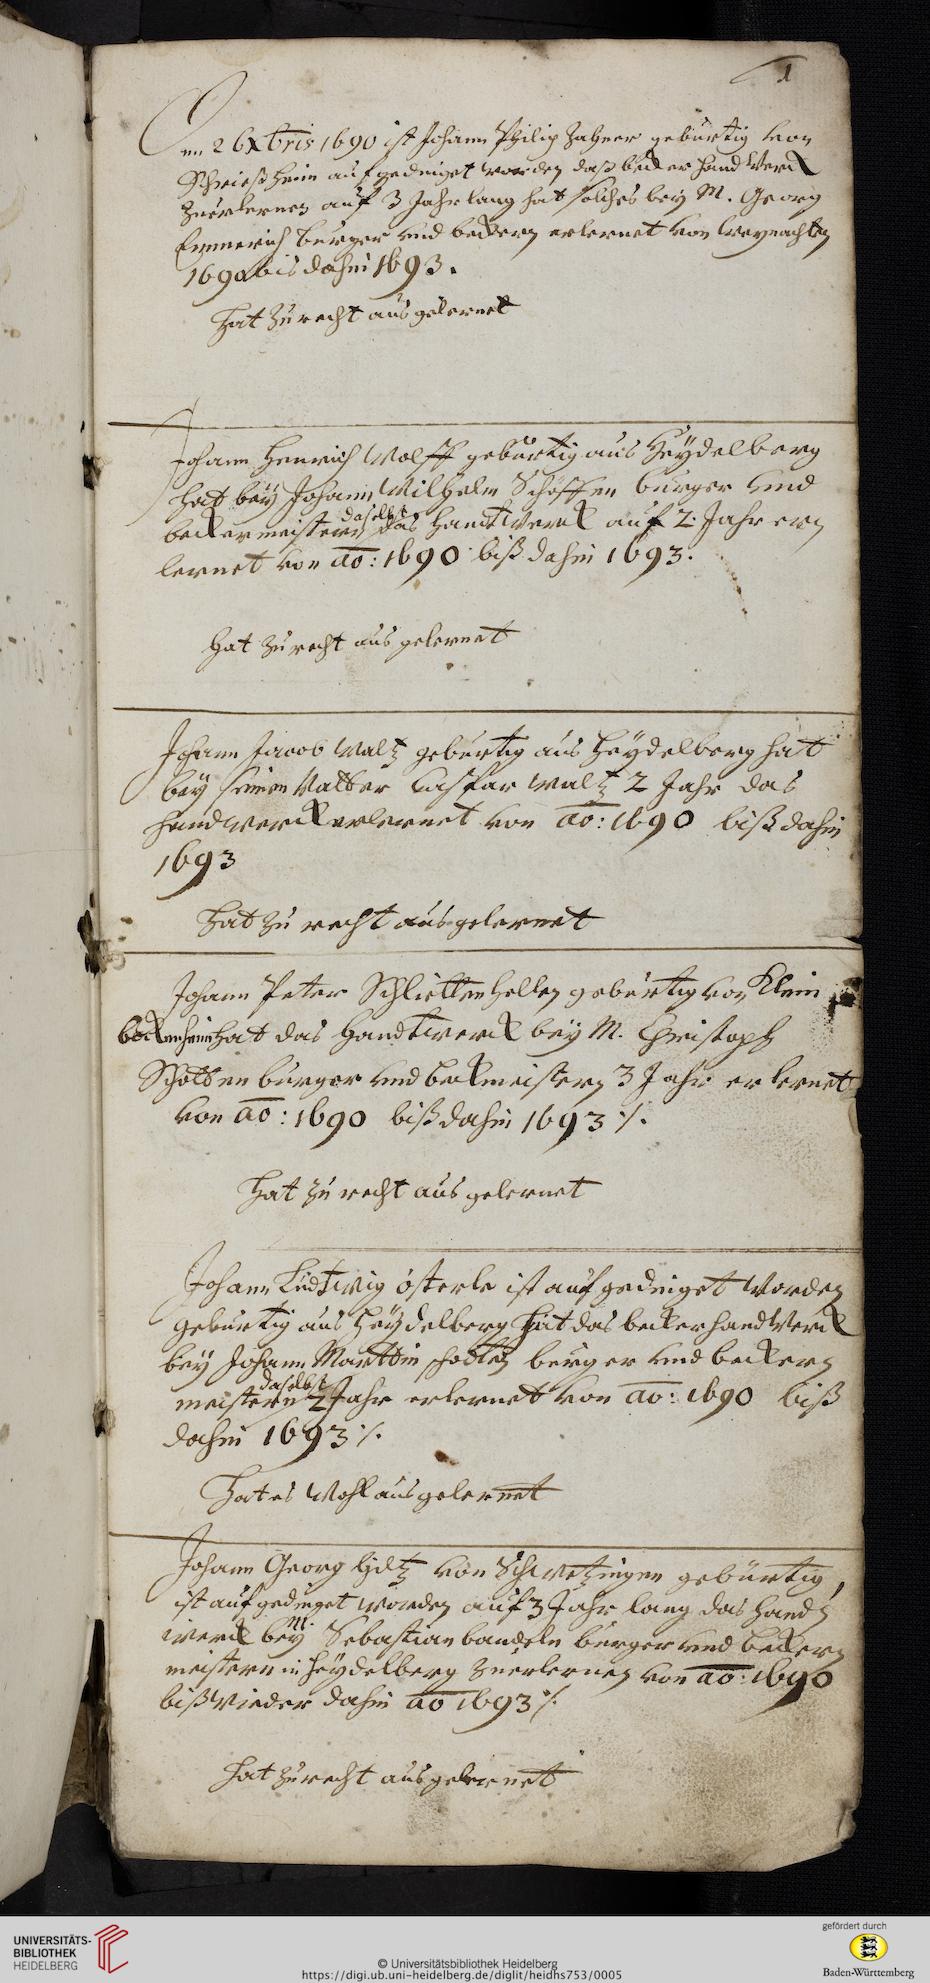 1
Den 26 Xbris 1690 ist Johann Philip Zahner gebürtig von
Schrießheim aufgedinget worden daß becker handwerck
Zuerlernen auf 3 Jahr lang hat solches bey M. Georg
Emmerich burger und beckern erlernet von weynachten
1690 bis dahin 1693.
Hat zu recht ausgelernet
Johann Henrich Wolff gebürtig aus Heÿdelberg
hat beÿ Johann Wilhelm Schöffen burger und
daselbst
beckermeistern das Handtwerck auf 2 Jahr er
lernet von ao: 1690 biß dahin 1693.
Hat zu recht ausgelernet
Johann Jacob Waltz gebürtig aus Heÿdelberg hat
beÿ seinen Vatter Casspar Waltz 2 Jahr das
handwerck erlernet von ao: 1690 biß dahin
1693
Hat zu recht ausgelernet
Johann Peter gebürtig von Klein
bockenheim hat das Handtwerck beÿ M. Christoph
Schotten burger und beckmeistern 3 Jahr erlernet
von ao: 1690 biß dahin 1693 ·/.
Hat zu recht ausgelernet
Johann Ludtwig österle ist aufgedinget worden
gebürtig aus Heÿdelberg hat das beckerhandwerck
beÿ Johann Marttin schotten burger und becker
daselbst
meistern 2 Jahr erlernet von ao: 1690 biß
dahin 1693 ·/.
Hat es wohl ausgelernet
Johann Georg von Schwetzingen gebürtig,
ist aufgedinget worden auf 3 Jahr lang das hand
M.
werck beÿ Sebastian bandeln burger und becker
meistern in Heÿdelberg zu erlernen von ao: 1690
biß wieder dahin ao 1693 ·/.
Hat zu recht ausgelernet
UNIVERSITÄTS-
BIBLIOTHEK
HEIDELBERG
© Universitätsbibliothek Heidelberg
https://digi.ub.uni-heidelberg.de/diglit/heidhs753/0005
gefördert durch
Baden-Württemberg